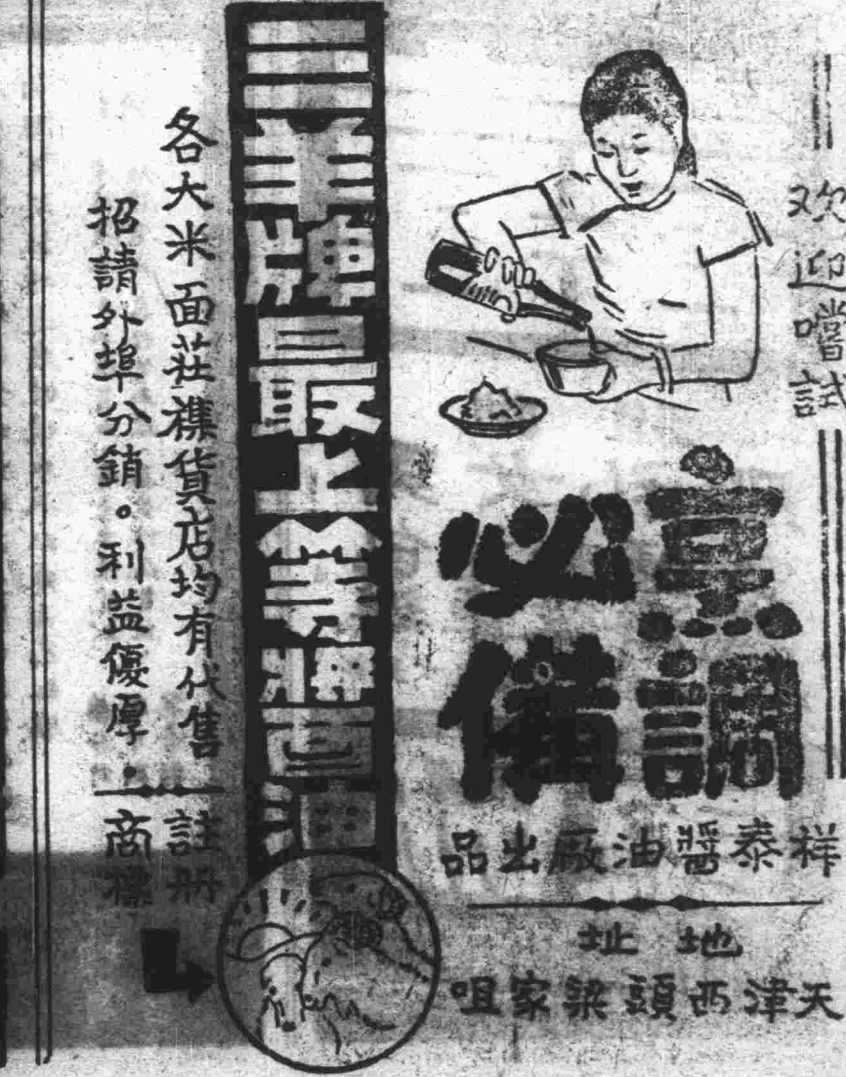 欢迎嚐試
烹調
必備
祥泰醬油厰出品
地址
天津西頭梁家咀
三羊牌最上等醬油
各大米面莊襍貨店均有代售
招請外埠分銷。利益優厚.
註册
商標